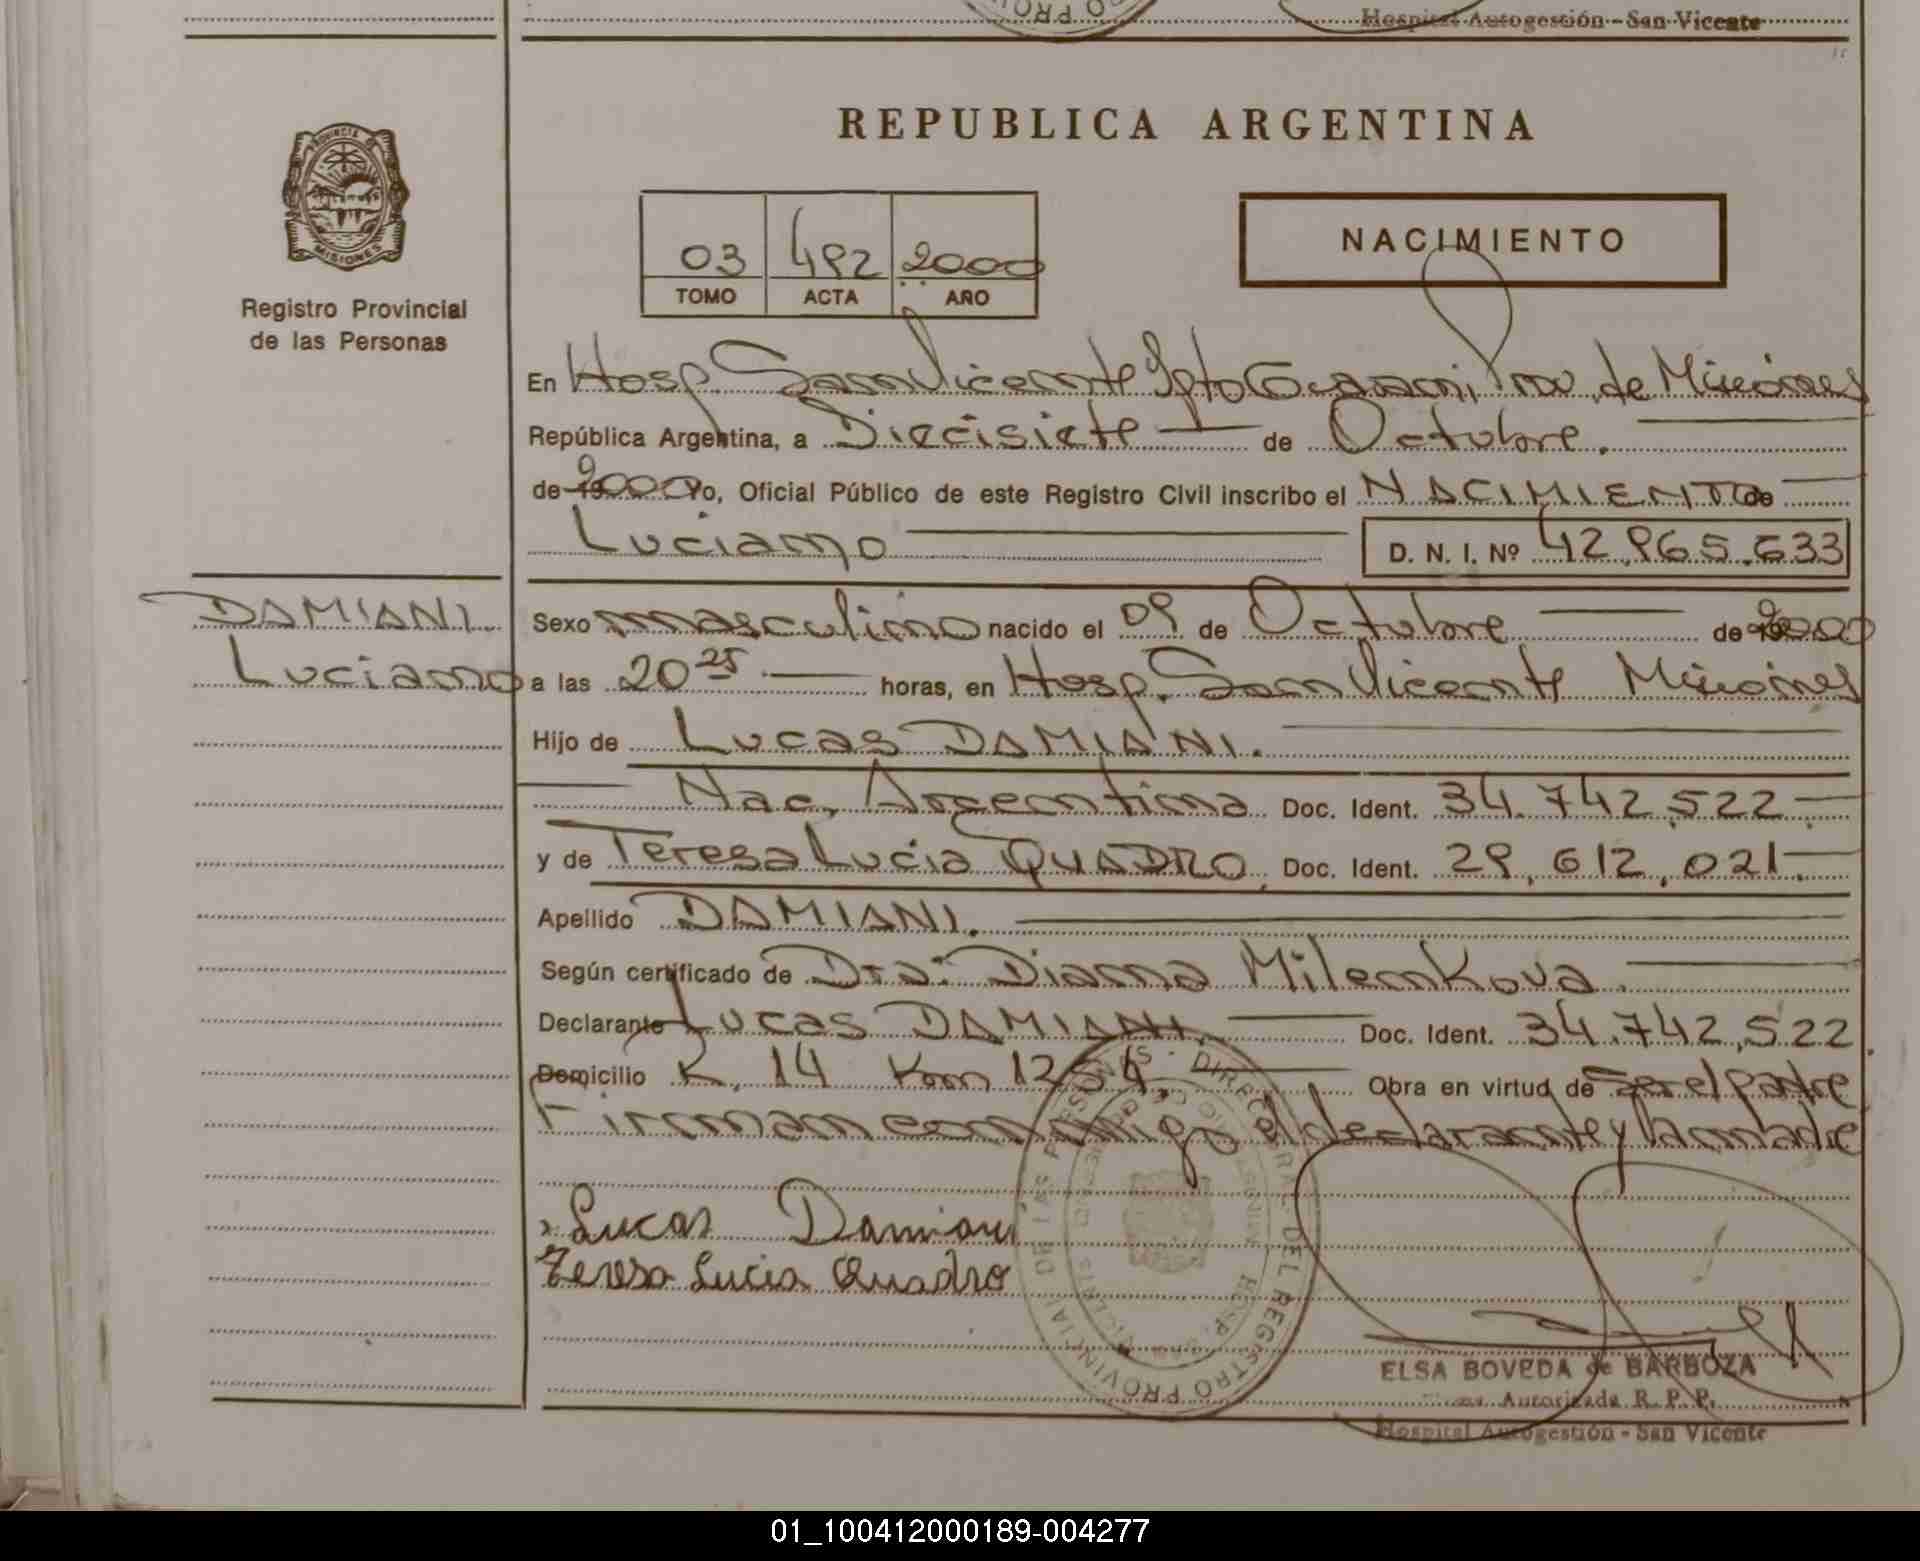 Hospital Autogestión - San Vicente
REPUBLICA ARGENTINA
PROVINCIA DE
MISIONES
Registro Provincial
de las Personas
03 492 2000
TOMO ACTA AÑO
NACIMIENTO
En Hosp. San Vicente Dpto Guaraní Prov. de Misiones
República Argentina, a Diecisiete de Octubre.
de 19 2000 Yo, Oficial Público de este Registro Civil inscribo el NACIMIENTO de
Luciano D. N. I. Nº 42.965.633
DAMIANI.
Luciano
Sexo masculino nacido el 09 de Octubre de 2000
a las 20 25 horas, en Hosp. San Vicente Misiones
Hijo de Lucas DAMIANI.
Nac. Argentina Doc. Ident. 34.742.522
y de Teresa Lucia QUADRO, Doc. Ident. 29.612.021.
Apellido DAMIANI.
Según certificado de Dra: Diana Milenkova.
Declarante Lucas DAMIANI. Doc. Ident. 34.742.522.
Domicilio R. 14 Km 1254. Obra en virtud de Ser el padre
Firman conmigo el declarante y la madre
Lucas Damiani
Teresa Lucia Quadro
DIRECCION GENERAL DEL REGISTRO PROVINCIAL DE LAS PERSONAS
ELSA BOVEDA de BARBOZA
Autorizada R. P. P.
Hospital Autogestión - San Vicente
01_100412000189-004277